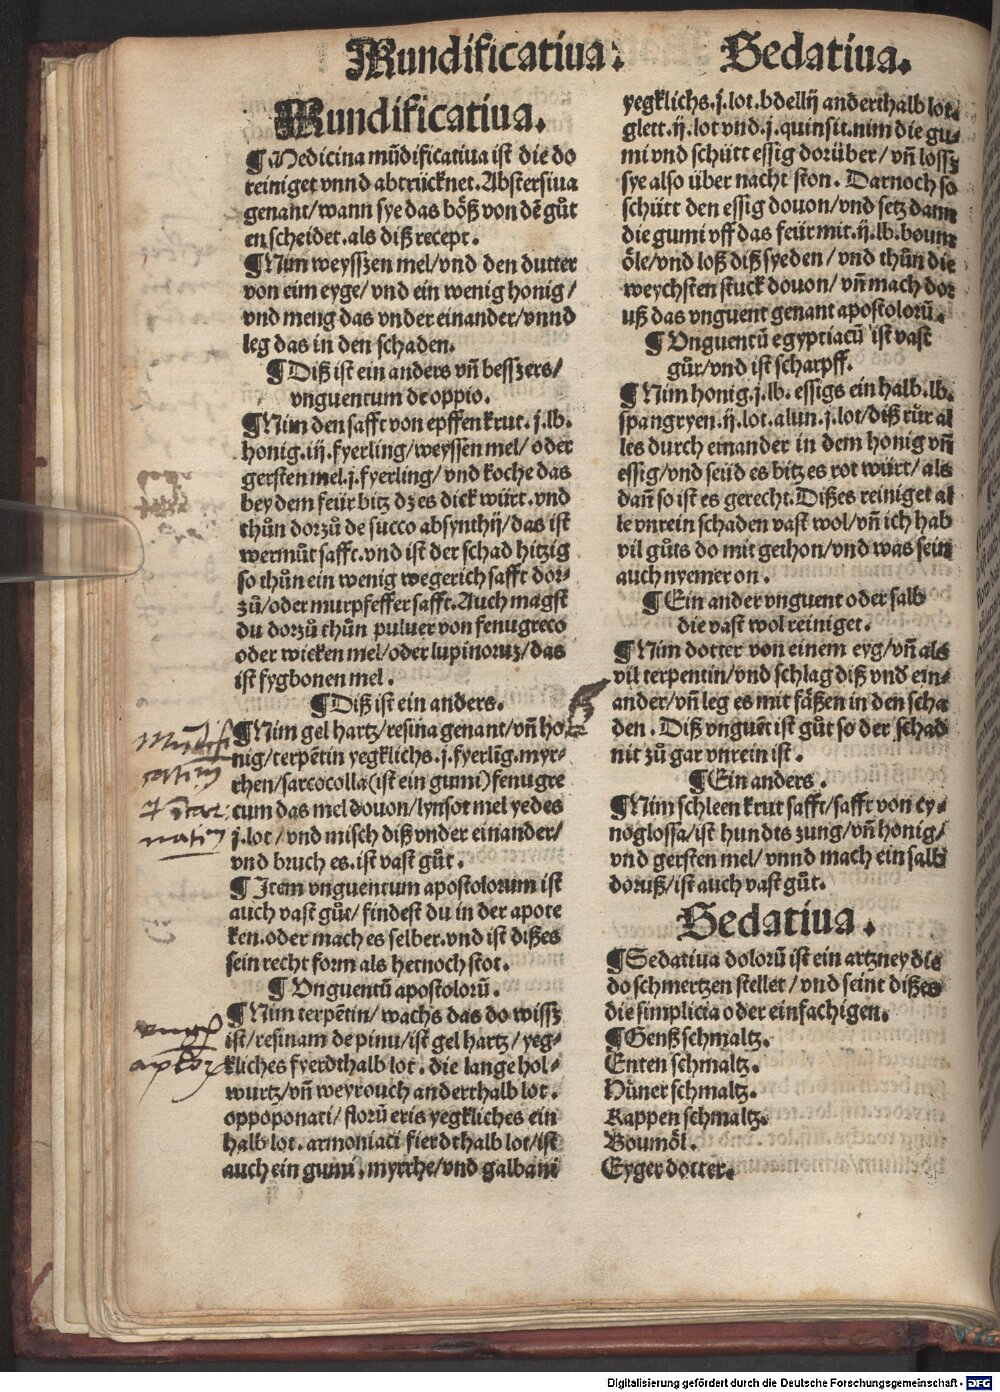 Mundificatiua: Sedatiua.
Mundificatiua.
¶Medicina mūdificatiua ist die do
reiniget vnnd abtrücknet. Abstersiua
genant/wann sye das böß von dē gůt
en scheidet. als diß recept.
¶Nim weysszen mel/vnd den dutter
von eim eyge/vnd ein wenig honig/
vnd meng das vnder einander/vnnd
leg das in den schaden.
¶Diß ist ein anders vn̄ besszers/
vnguentum de oppio.
¶Nim den safft von epffen krut. j. lb.
honig. iij. fyerling/weyssen mel/oder
gersten mel. j. fyerling/vnd koche das
bey dem feür bitz dz es dick würt. vnd
thůn dorzů de succo absynthij/das ist
wermůt safft. vnd ist der schad hitzig
so thůn ein wenig wegerich safft dor-
zů/oder murpfeffer safft. Auch magst
du dorzů thůn puluer von fenugreco
oder wicken mel/oder lupinoruz/das
ist fygbonen mel.
¶Diß ist ein anders.
¶Nim gel hartz/resina genant/vn̄ ho
nig/terpētin yegklichs. j. fyerlīg. myr-
rhen/sarcocolla(ist ein gumi)fenugre
cum das mel douon/lynsot mel yedes
j. lot/vnd misch diß vnder einander/
vnd bruch es. ist vast gůt.
¶Item vnguentum apostolorum ist
auch vast gůt/findest du in der apote
ken. oder mach es selber. vnd ist dißes
sein recht form als hernoch stot.
¶Vnguentū apostolorū.
¶Nim terpētin/wachs das do wissz
ist/resinam de pinu/ist gel hartz/yeg-
kliches fyerdthalb lot. die lange hol-
wurtz/vn̄ weyrouch anderthalb lot.
oppoponati/florū eris yegkliches ein
halb lot. armoniaci fierdthalb lot/ist
auch ein gumi. myrrhe/vnd galbani
yegklichs. j. lot. bdellij anderthalb lot.
glett. ij. lot vnd. j. quinsit. nim die gu-
mi vnd schütt essig dorüber/vn̄ lossz
sye also über nacht ston. Darnoch so
schütt den essig douon/vnd setz dann
die gumi vff das feür mit. ij. lb. boum
öle/vnd loß diß syeden/vnd thůn die
weychsten stuck douon/vn̄ mach dor
uß das vnguent genant apostolorū.
¶Vnguentū egyptiacū ist vast
gůt/vnd ist scharpff.
¶Nim honig. j. lb. essigs ein halb. lb.
spangryen. ij. lot. alun. j. lot/diß rür al
les durch einander in dem honig vn̄
essig/vnd seüd es bitz es rot würt/als
dan̄ so ist es gerecht. Dißes reiniget al
le vnrein schaden vast wol/vn̄ ich hab
vil gůts do mit gethon/vnd was sein
auch nyemer on.
¶Ein ander vnguent oder salb
die vast wol reiniget.
¶Nim dotter von einem eyg/vn̄ als
vil terpentin/vnd schlag diß vnd ein-
ander/vn̄ leg es mit fäßen in den scha
den. Diß vnguēt ist gůt so der schad
nit zů gar vnrein ist.
¶Ein anders.
¶Nim schleen krut safft/safft von cy-
noglossa/ist hundts zung/vn̄ honig/
vnd gersten mel/vnnd mach ein salb
doruß/ist auch vast gůt.
Sedatiua.
¶Sedatiua dolorū ist ein artzney die
do schmertzen stellet/vnd seint dißes
die simplicia oder einfachigen.
¶Genß schmaltz.
Enten schmaltz.
Hüner schmaltz.
Kappen schmaltz.
Boumöl.
Eyger dotter.
Digitalisierung gefördert durch die Deutsche Forschungsgemeinschaft - DFG